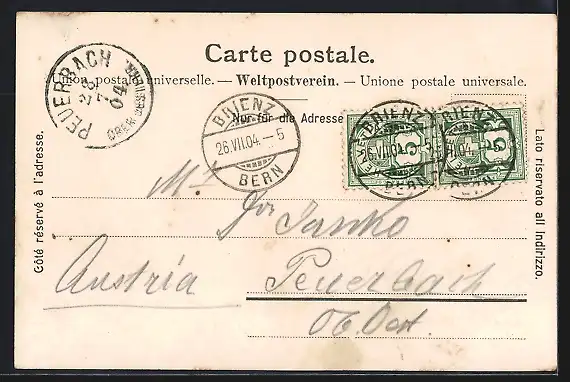 Carte postale.
Union postale universelle. — Weltpostverein. — Unione postale universale.
Nur für die Adresse
Côté réservé à l'adresse.
Lato riservato all indirizzo.
PEUERBACH
28
7
04
BRIENZ
26.VII.04. – 5
BERN
BRIENZ
BERN
5
5
Dr Janko
Austria
Peuerbach
Ob. Oest.